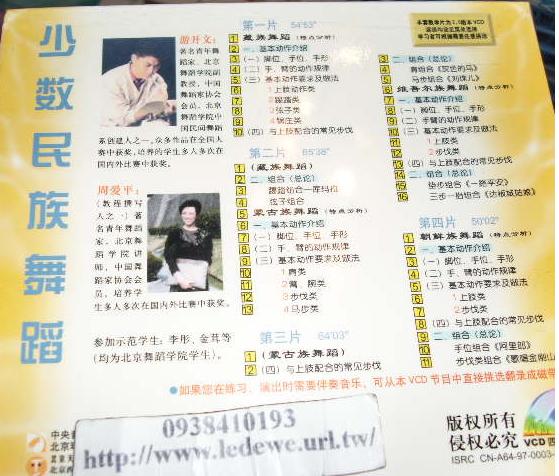 少数民族舞蹈
游开文：
著名青年舞
蹈家、北京
舞蹈学院副
教授，中国
舞蹈家协会
会员、北京
舞蹈学院中
国民间舞蹈
系创建人之一，众多作品在全国大
赛中获奖，培养的学生多人多次在
国内外比赛中获奖。
周爱平：
（教程撰写
人之一）著
名青年舞蹈
家、北京舞
蹈学院讲
师、中国舞
蹈家协会会
员，培养学
生多人多次在国内外比赛中获奖。
参加示范学生：李彤、金苒等
（均为北京舞蹈学院学生）。
第一片 54'53"
1 藏族舞蹈（特点分析）
2 一、基本动作介绍
3 （一）脚位、手位、手形
4 （二）手、臂的动作规律
5 （三）基本动作要求及做法
6 1上肢动作
7 2踢踏类
8 3弦子类
9 4锅庄类
10 （四）与上肢配合的常见步伐
第二片 65'38"
1 （藏族舞蹈）
2 二、组合（总论）
3 踢踏组合
4 弦子组合
5 蒙古族舞蹈（特点分析）
6 一、基本动作介绍
7 （一）脚位、手位、手形
8 （二）手、臂的动作规律
9 （三）基本动作要求及做法
10 1肩类
11 2臂、腕类
12 3步伐类
13 4马步类
第三片 64'03"
1 （蒙古族舞蹈）
2 （四）与上肢配合的常见步伐
3 二、组合（总论）
维吾尔族舞蹈（特点分析）
一、基本动作介绍
（一）脚位、手位、手形
（二）手、臂的动作规律
（三）基本动作要求及做法
1上肢类
2步伐类
（四）与上肢配合的常见步伐
二、组合（总论）
第四片 50'02"
1 朝鲜族舞蹈（特点分析）
2 一、基本动作介绍
3 （一）脚位、手位、手形
4 （二）手、臂的动作规律
5 （三）基本动作要求及做法
6 1上肢类
7 2步伐类
8 （四）与上肢配合的常见步伐
9 二、组合（总论）
10 手位组合《阿里郎》
11 步伐类组合
●如果您在练习、演出时需要伴奏音乐，可从本VCD节目中直接挑选翻录成磁带
0938410193
http://www.ledewe.url.tw/
版权所有
侵权必究
VCD
ISRC CN-A64-97-0003-